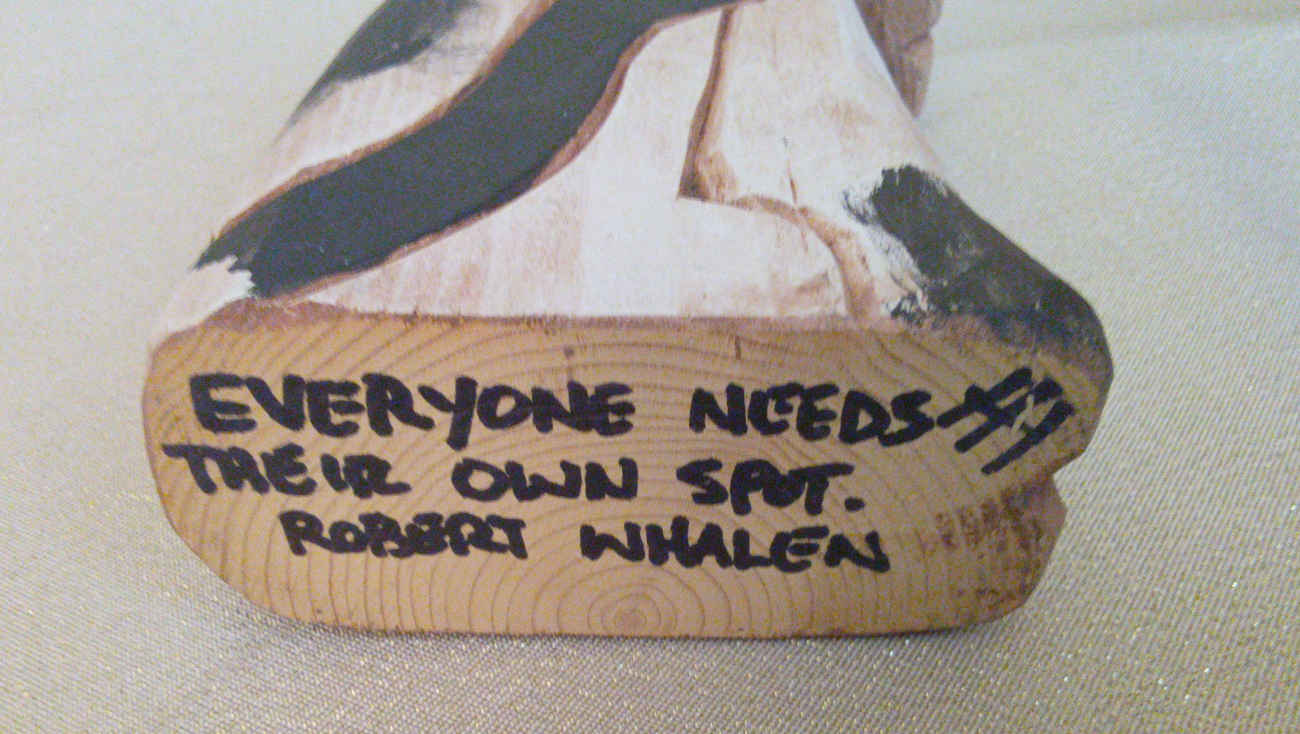 EVERYONE NEEDS #1
THEIR OWN SPOT.
ROBERT WHALEN